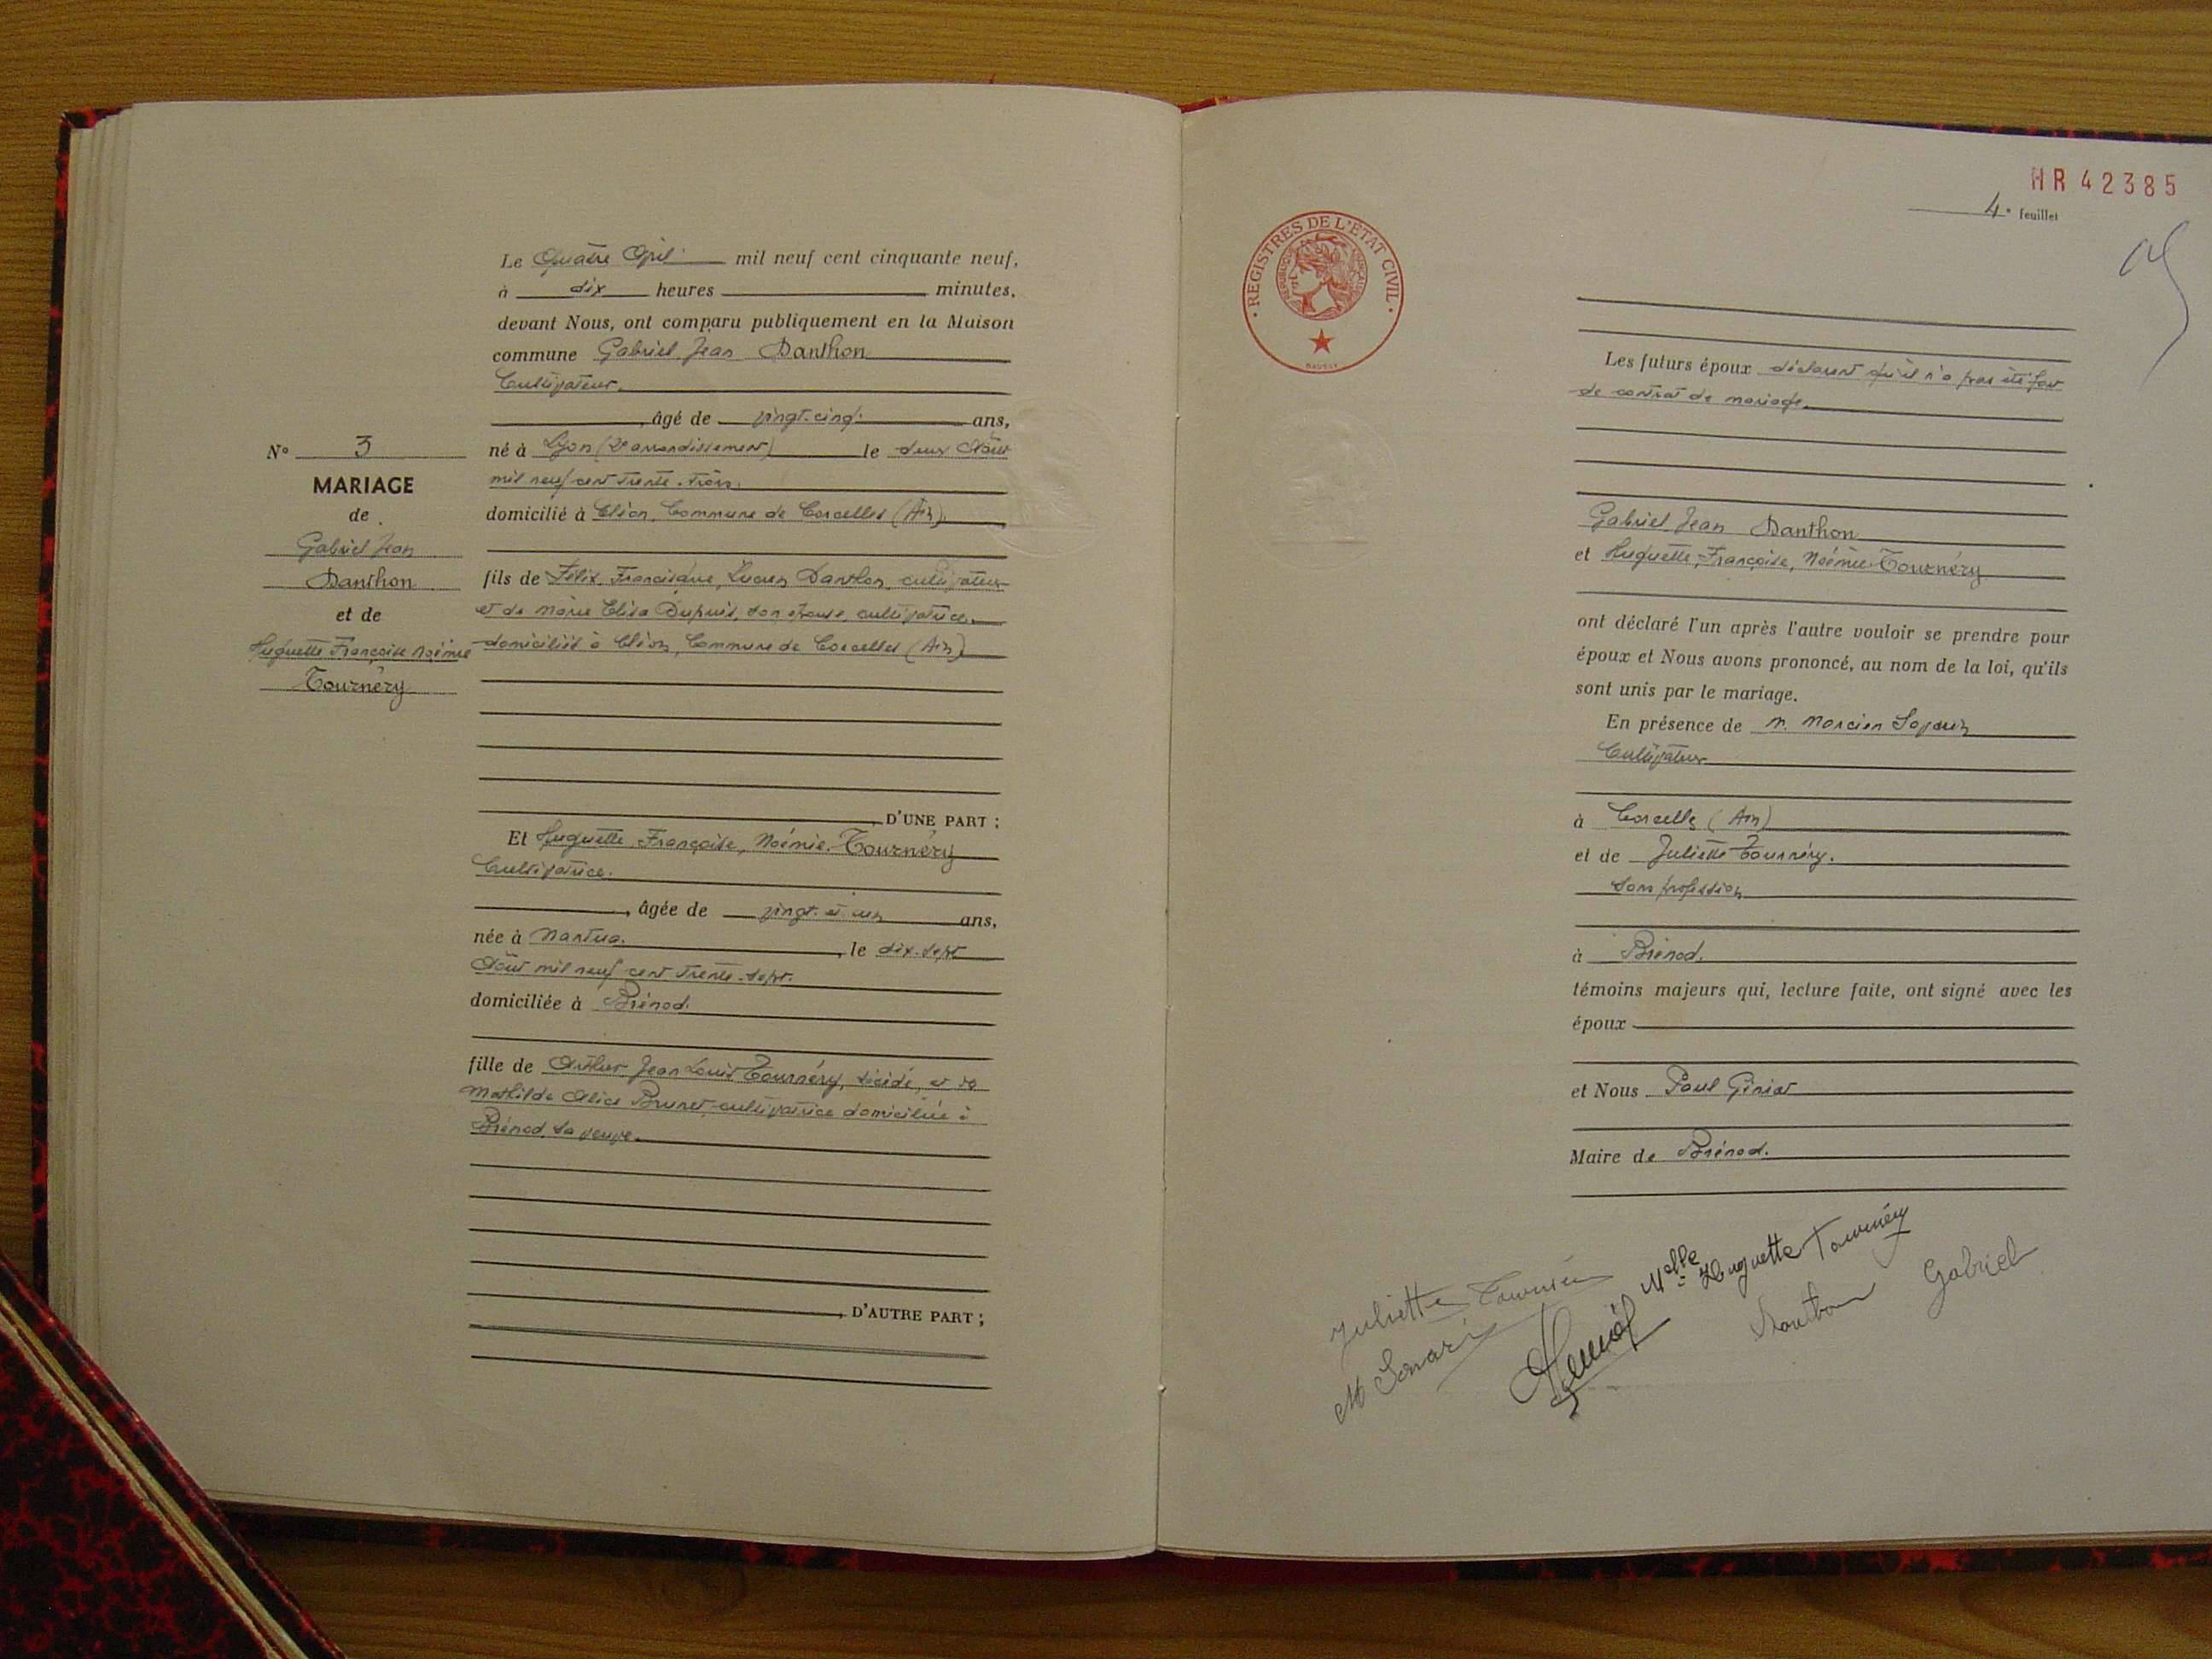 Le Quatre Avril mil neuf cent cinquante neuf,
à dix heures minutes,
devant Nous, ont comparu publiquement en la Maison
commune Gabriel Jean Danthon
Cultivateur.
, âgé de vingt-cinq ans,
né à Lyon (2e arrondissement) le deux Août
mil neuf cent trente-trois.
domicilié à Cléon, Commune de Corcelles (Ain)
fils de Félix, Francisque, Lucien Danthon, cultivateur
et de Marie Elisa Dupuis, son épouse, cultivatrice
domiciliés à Cléon, Commune de Corcelles (Ain)
D'UNE PART ;
Et Huguette, Françoise, Noémie Tournéry
Cultivatrice.
, âgée de vingt et un ans,
née à Nantua. , le dix-sept
Août mil neuf cent trente-sept.
domiciliée à Brénod.
fille de Arthur Jean Louis Tournéry, décédé, et de
Mathilde Alice Brunet, cultivatrice domiciliée à
Brénod, sa veuve.
, D'AUTRE PART ;
N° 3
MARIAGE
de
Gabriel Jean
Danthon
et de
Huguette Françoise Noémie
Tournéry
HR 42385
4e feuillet
REGISTRES DE L'ÉTAT CIVIL
RÉPUBLIQUE FRANÇAISE
Les futurs époux déclarent qu'il n'a pas été fait
de contrat de mariage.
Gabriel Jean Danthon
et Huguette, Françoise, Noémie Tournéry
ont déclaré l'un après l'autre vouloir se prendre pour
époux et Nous avons prononcé, au nom de la loi, qu'ils
sont unis par le mariage.
En présence de M. Marcien
Cultivateur
à Corcelles (Ain)
et de Juliette Tournéry.
sans profession
à Brénod.
témoins majeurs qui, lecture faite, ont signé avec les
époux
et Nous Paul
Maire de Brénod.
Melle Huguette Tournéry
Juliette Tournéry
Danthon Gabriel
M